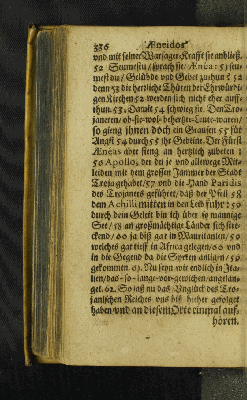 336 Æneidos
und mit seiner Warsager-Krafft sie anbließ.
52 Seumestu/ sprach sie/ Ænea: 53 seu-
mestu/ Gelübde und Gebet zuthun? 52
denn 53 die herzliche Thüren der Ehrwürdi-
gen Kirchen 52 werden sich nicht eher auff-
thun. 53. Damit 54 schwieg sie. Den Tro-
janern/ ob sie wol beherzte Leute waren/
so gieng ihnen doch ein Grausen 55 für
Angst 54 durch 55 ihr Gebeine. Der Fürst
Æneas aber fieng an herzlich zubeten:
56 Apollo, der du je und allewege Mit-
leiden mit dem grossen Jammer der Stadt
Troja gehabt/ 57 und die Hand Paridis
des Trojaners geführet/ daß der Pfeil 58
dem Achilli mitten in den Leib fuhr: 59
durch dein Geleit bin ich über so mannige
See/ 58 an großmächtige Länder sich stre-
ckend/ 60 ja biß gar in Mauritanien/ 59
welches gar tieff in Africa gelegen/ 60 und
in die Gegend da die Syrten anligen/ 59
gekommen. 61. Nu seyn wir endlich in Ita-
lien/ das so lange vor gewichen/ angelan-
get. 62. So laß nu das Unglück des Tro-
janischen Reiches uns biß hieher gefolget
haben/ und an diesem Orte einmal auf-
hören.